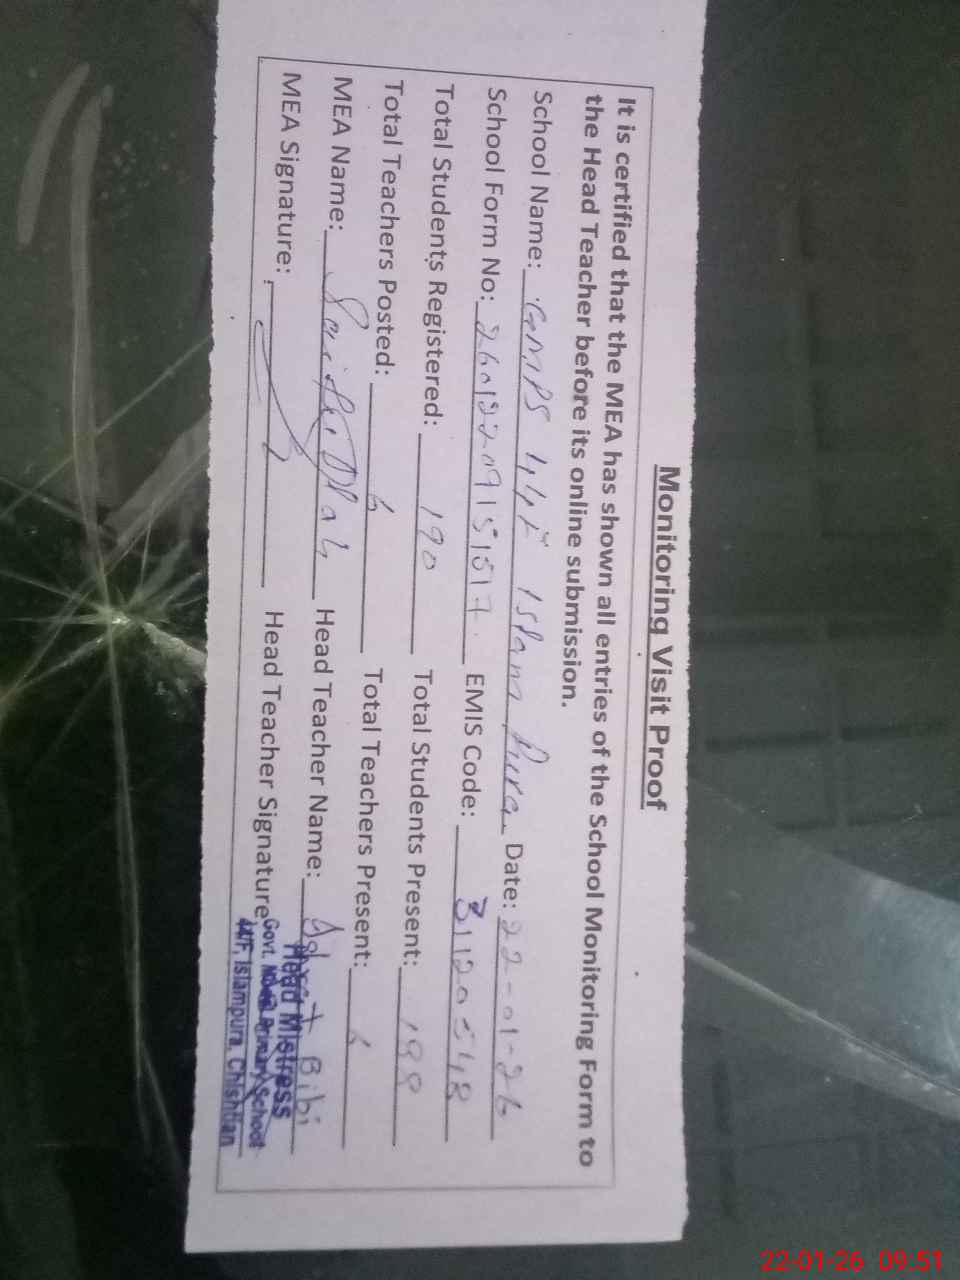 Monitoring Visit Proof
It is certified that the MEA has shown all entries of the School Monitoring Form to
the Head Teacher before its online submission.
School Name: GMPS 44F Islam Pura Date: 22-01-26
School Form No: EMIS Code: 31120548
Total Students Registered: 190 Total Students Present: 188
Total Teachers Posted: 6 Total Teachers Present: 6
MEA Name: Head Teacher Name: Bibi
MEA Signature: Head Teacher Signature
Head Mistress
Govt. Primary School
44/F, Islampura, Chishtian
22-01-26 09:51